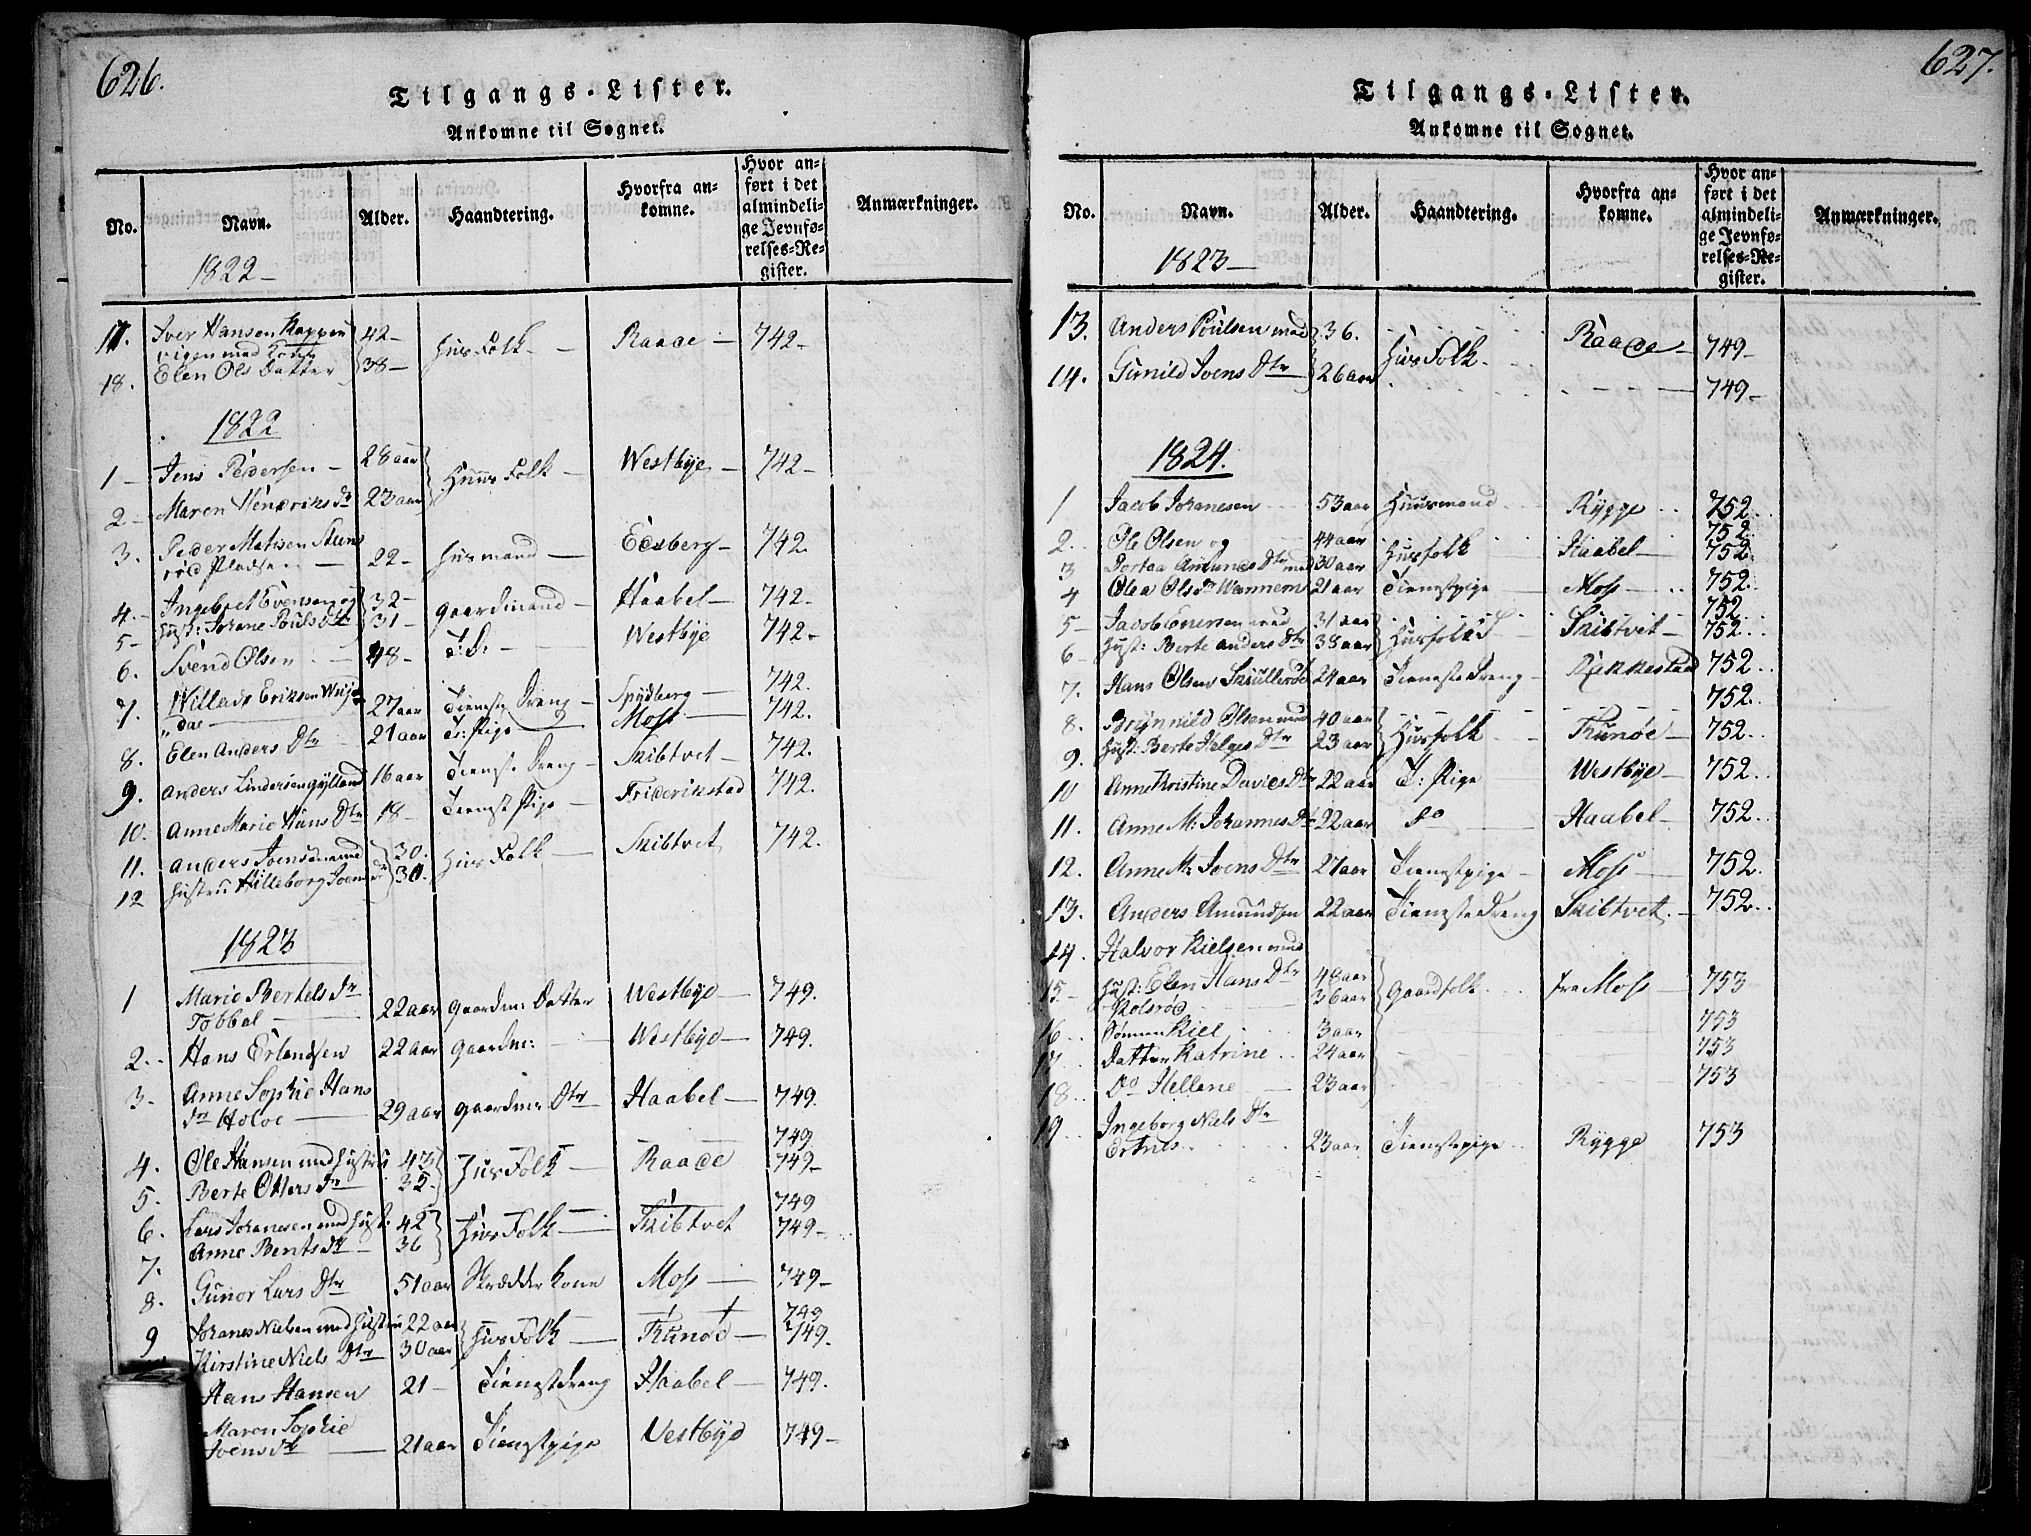 626.
Tilgangs-Lister.
Ankomne til Sognet.
No. Navn. Alder. Haandtering. Hvorfra ankomne. Hvor anført i det almindelige Jevnførelses-Register. Anmærkninger.
1822 -
17. Iver Hansen 42 -
vigen med Kone
18. Elen Ols Datter 38 - Huus Folk - Raade - 742 -
1822
1 - Jens Pedersen - 28 aar Huus Folk - Westbye - 742 -
2 - Maren Hendriks dr 23 aar
3. Peder Matisen
röd Pladsen - 22 - Husmand - Edsberg - 742.
4. - Ingebret Evensen og 32 - gaardmand - Haabel - 742.
5 - Hust: Johane Pouls Dtr 31 -
6. Svend Olsen - 48 - T: D: - Westbye 742 -
7. Willads Eriksen
dal - 27 aar Tieneste Dreng - Spydberg - 742.
8. Elen Anders Dtr 21 aar T: Pige Moss - 742.
9. Anders Lindersen 16 aar Tienest Dreng - Skibtvet - 742.
10. Anne Marie Hans Dtr 18 - Tienest Pige - Friderikstad 742.
11. Anders Svensen med 30. Hus Folk - Skibtvet 742.
12 Hustru Hilleborg Svens dr 30.
1823
1 Marie Bertels dr
Tobbal - 22 aar gaardm: Datter Westbye - 749.
2. - Hans Erlandsen 22 aar gaardm: Westbye - 749.
3. - Anne Sophie Hans
dr Holoe - 29 aar gaardm: Dtr Haabel - 749.
749
4. Ole Hansen med Hustru 43 Hus Folk - Raade 749 -
5. Berte Otters dr 35 -
749
6. Lars Johanesen med Hust: 42 Hus Folk - Skibtvet 749 -
7. Anne Bents dr - 36
8. Gunor Lars Dtr 51 aar Skrædder kone Moss - 749 -
749
9 Johanes Nielsen med Hustru 22 aar Hus Folk - Thunöe - 749.
Kirstine Niels Dtr 30 aar
Hans Hansen 21 - Tienestdreng Haabel - 749.
Maren Sophie
Svens dr - 21 aar Tienestpige Vestbye 749 -
627.
Tilgangs-Lister.
Ankomne til Sognet.
No. Navn. Alder. Haandtering. Hvorfra ankomne. Hvor anført i det almindelige Jevnførelses-Register. Anmærkninger.
1823 -
13. Anders Poulsen med 36. Hus Folk Raade - 749 -
14. Gunild Svens Dtr 26 aar 749 -
1824.
1 Jacob Johanesen 53 aar Huusmand Rygge 752.
752
2. Ole Olsen og 44 aar Husfolk Haabel - 752.
3 Amunds Dtr med 30 aar
4 Olea Ols dr Wannem 21 aar Tienestpige Moss 752.
752
5 - Jacob Enersen med 31 aar Husfolk Skibtvet - 752.
6 - Hust: Berte Anders Dtr 38 aar
7. Hans Olsen Skulleröd 24 aar Tieneste Dreng - Rakkestad 752.
752.
8. Brynnild Olsen med 40 aar Husfolk Thunöe - 752.
9. Hust: Berte Helges Dtr 23 aar
10 Anne Kristine Davids Dtr 22 aar T: Pige Westbye - 752.
11. Anne M: Johannes Dtr 22 aar do Haabel - 752.
12. Anne M: Svens Dtr 27 aar Tienestpige - Moss 752.
13. Anders Amundsen 22 aar Tieneste Dreng Skibtvet. - 752.
14. Halvor Kielsen med
15. - Hust: Elen Hans Dtr 48 aar gaardfolk fra Moss - 753
Skolsröd 36 aar
16 Sönnen Kiel 3 aar 753
17 Datter Katrine 24 aar 753
18 Do Hellene 23 aar 753
19 Ingeborg Niels Dtr
23 aar Tienestpige Rygge 753